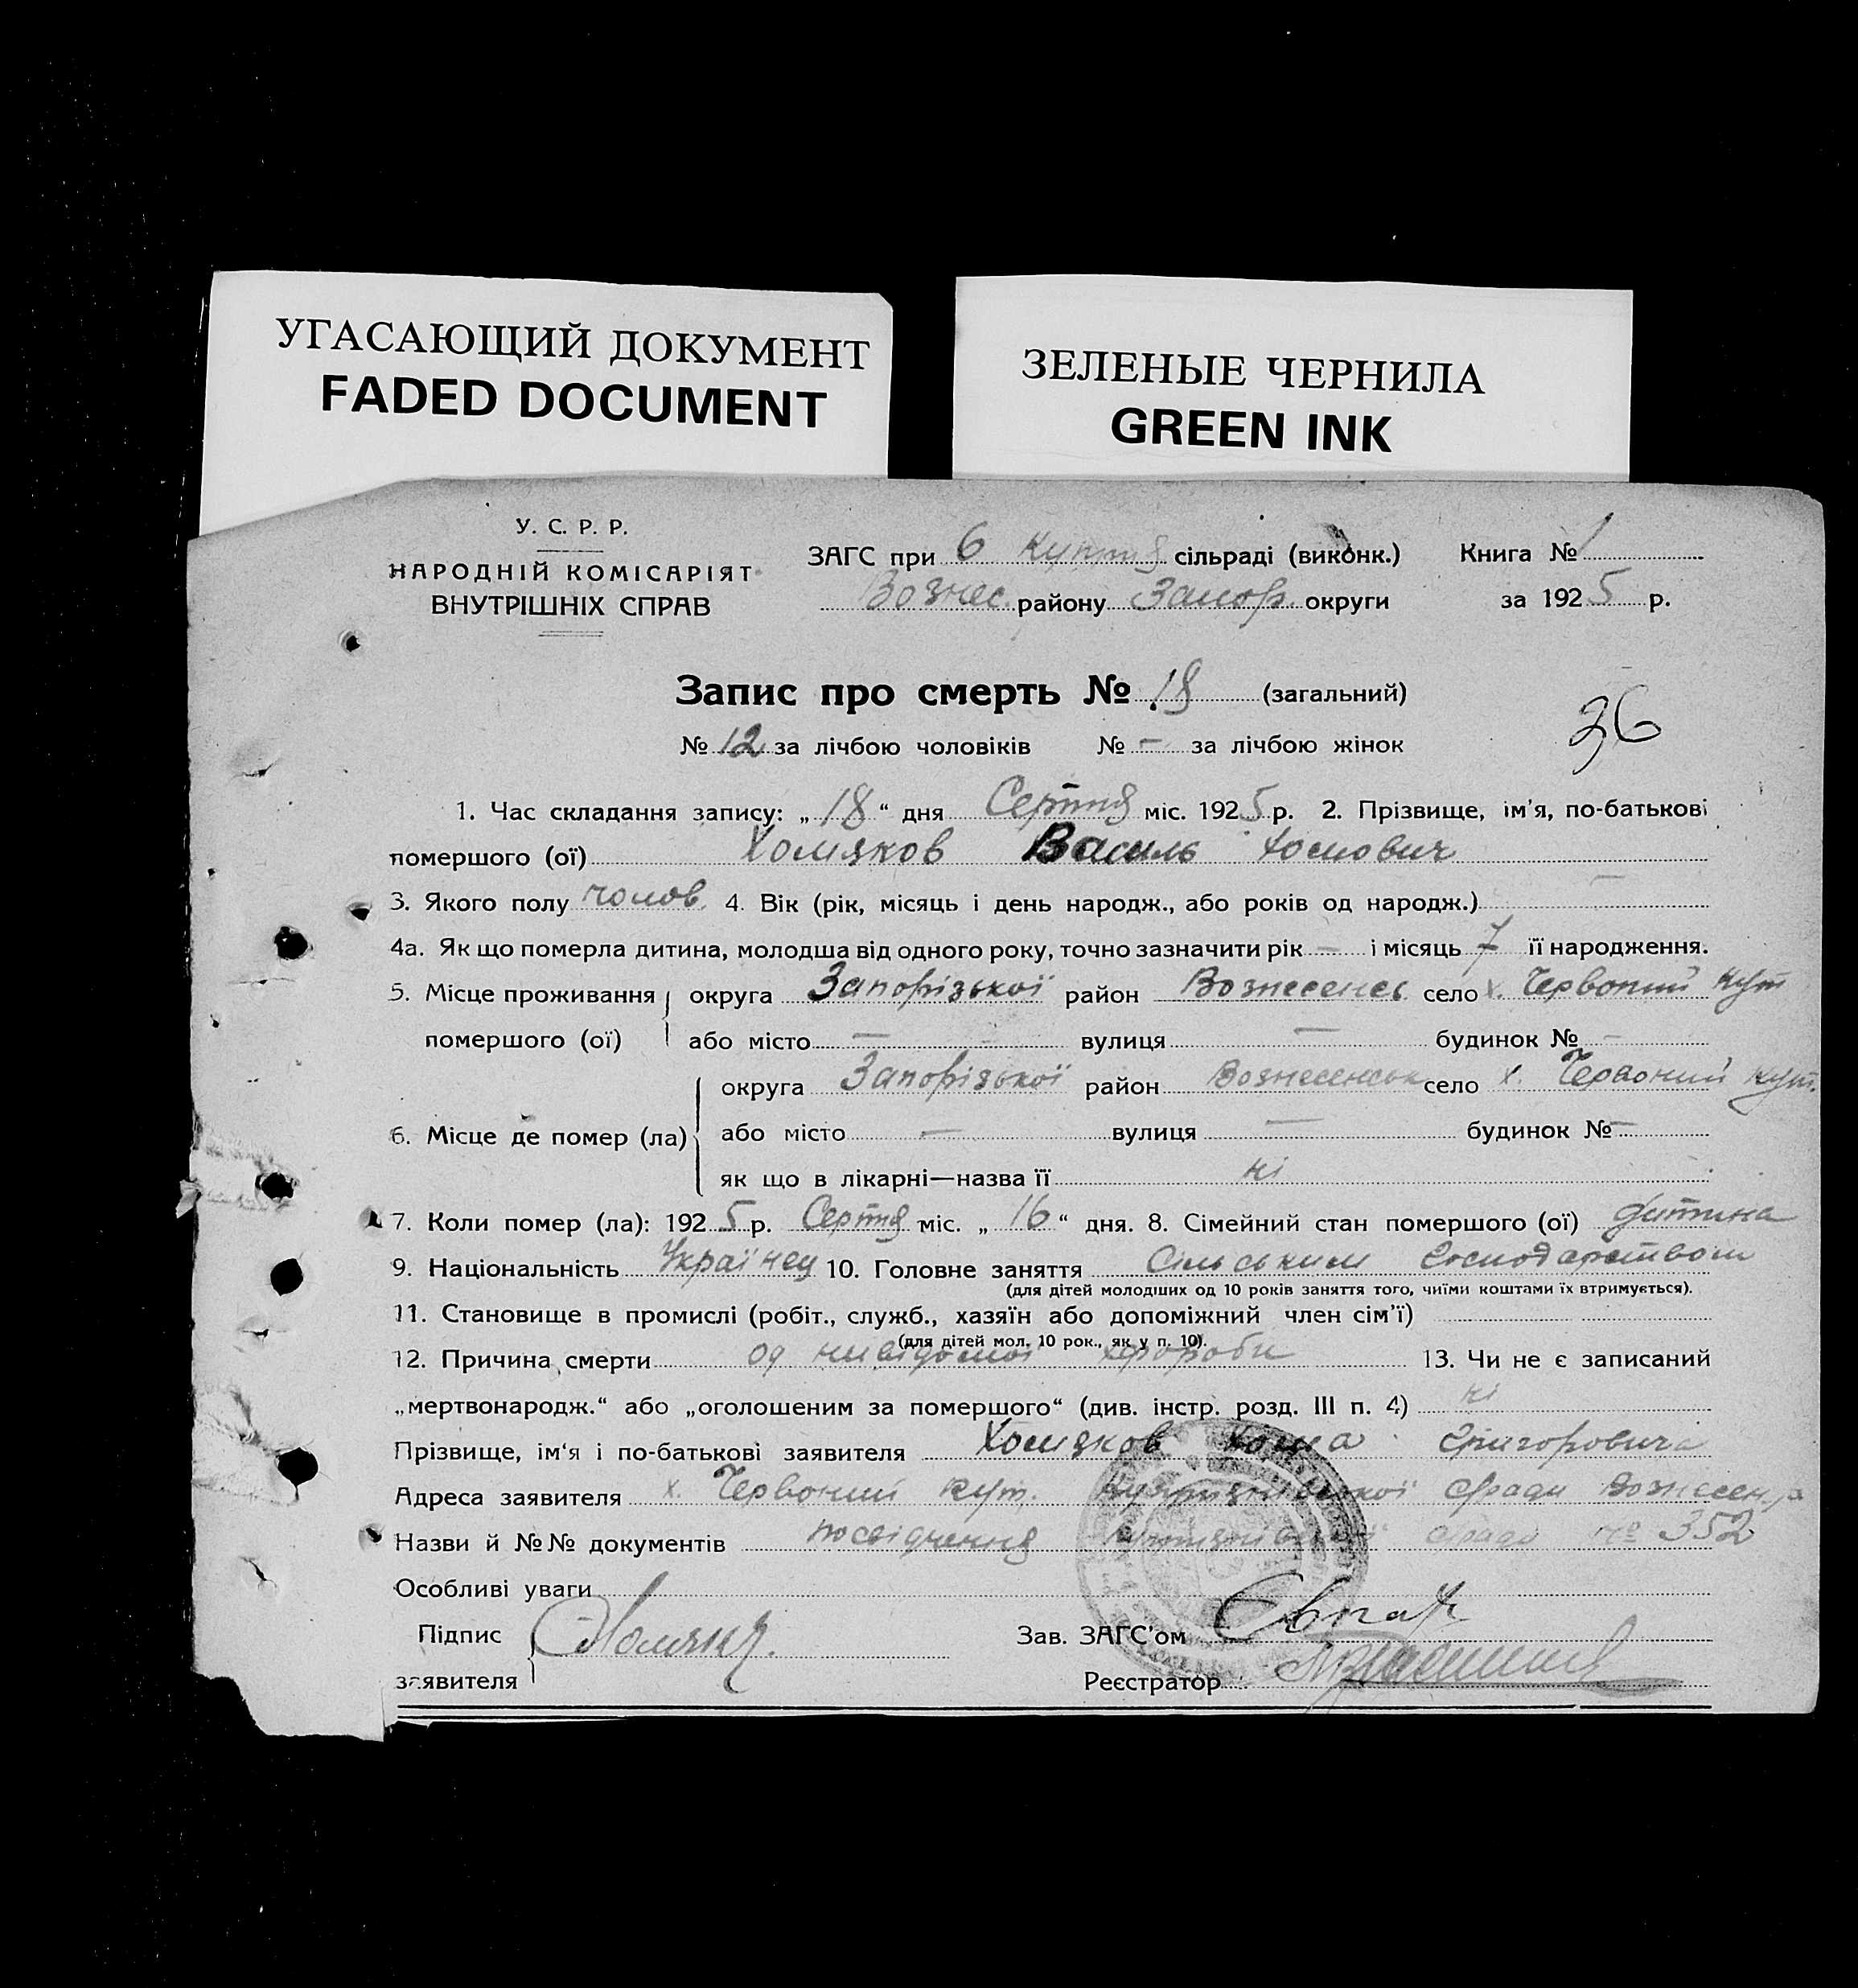 УГАСАЮЩИЙ ДОКУМЕНТ
FADED DOCUMENT
ЗЕЛЕНЫЕ ЧЕРНИЛА
GREEN INK
У. С. Р. Р.
НАРОДНІЙ КОМІСАРІЯТ
ВНУТРІШНІХ СПРАВ
ЗАГС при 6 сільраді (виконк.) Книга № 1
Вознес. району Запор округи за 1925 р.
Запис про смерть № 18 (загальний)
36
№ 12 за лічбою чоловіків № — за лічбою жінок
1. Час складання запису: „18“ дня Серпня міс. 1925 р. 2. Прізвище, ім'я, по-батькові
помершого (ої) Хомяков Василь Хомович
3. Якого полу чолов. 4. Вік (рік, місяць і день народж., або років од народж.) —
4а. Як що померла дитина, молодша від одного року, точно зазначити рік — і місяць 7 її народження.
5. Місце проживання помершого (ої) округа Запорізької район Вознесенсь село х. Червоний Кут
або місто — вулиця — будинок № —
6. Місце де помер (ла) округа Запорізької район Вознесенськ село х. Червоний Кут.
або місто — вулиця — будинок № —
як що в лікарні—назва її ні
7. Коли помер (ла): 1925 р. Серпня міс. „16“ дня. 8. Сімейний стан помершого (ої) дитина
9. Національність Українец 10. Головне заняття Сільським Господарством
(для дітей молодших од 10 років заняття того, чиїми коштами їх втримується).
11. Становище в промислі (робіт., служб., хазяїн або допоміжний член сім'ї)
(для дітей мол. 10 рок., як у п. 10).
12. Причина смерти од невідомої хороби 13. Чи не є записаний
„мертвонародж.“ або „оголошеним за помершого“ (див. інстр. розд. III п. 4) ні
Прізвище, ім'я і по-батькові заявителя Хомяков Хома Григоровича
Адреса заявителя х. Червоний Кут. с/ради Вознесен. р
Назви й №№ документів посвідчення с/ради № 352
Особливі уваги
Підпис заявителя
Зав. ЗАГС'ом
Реєстратор